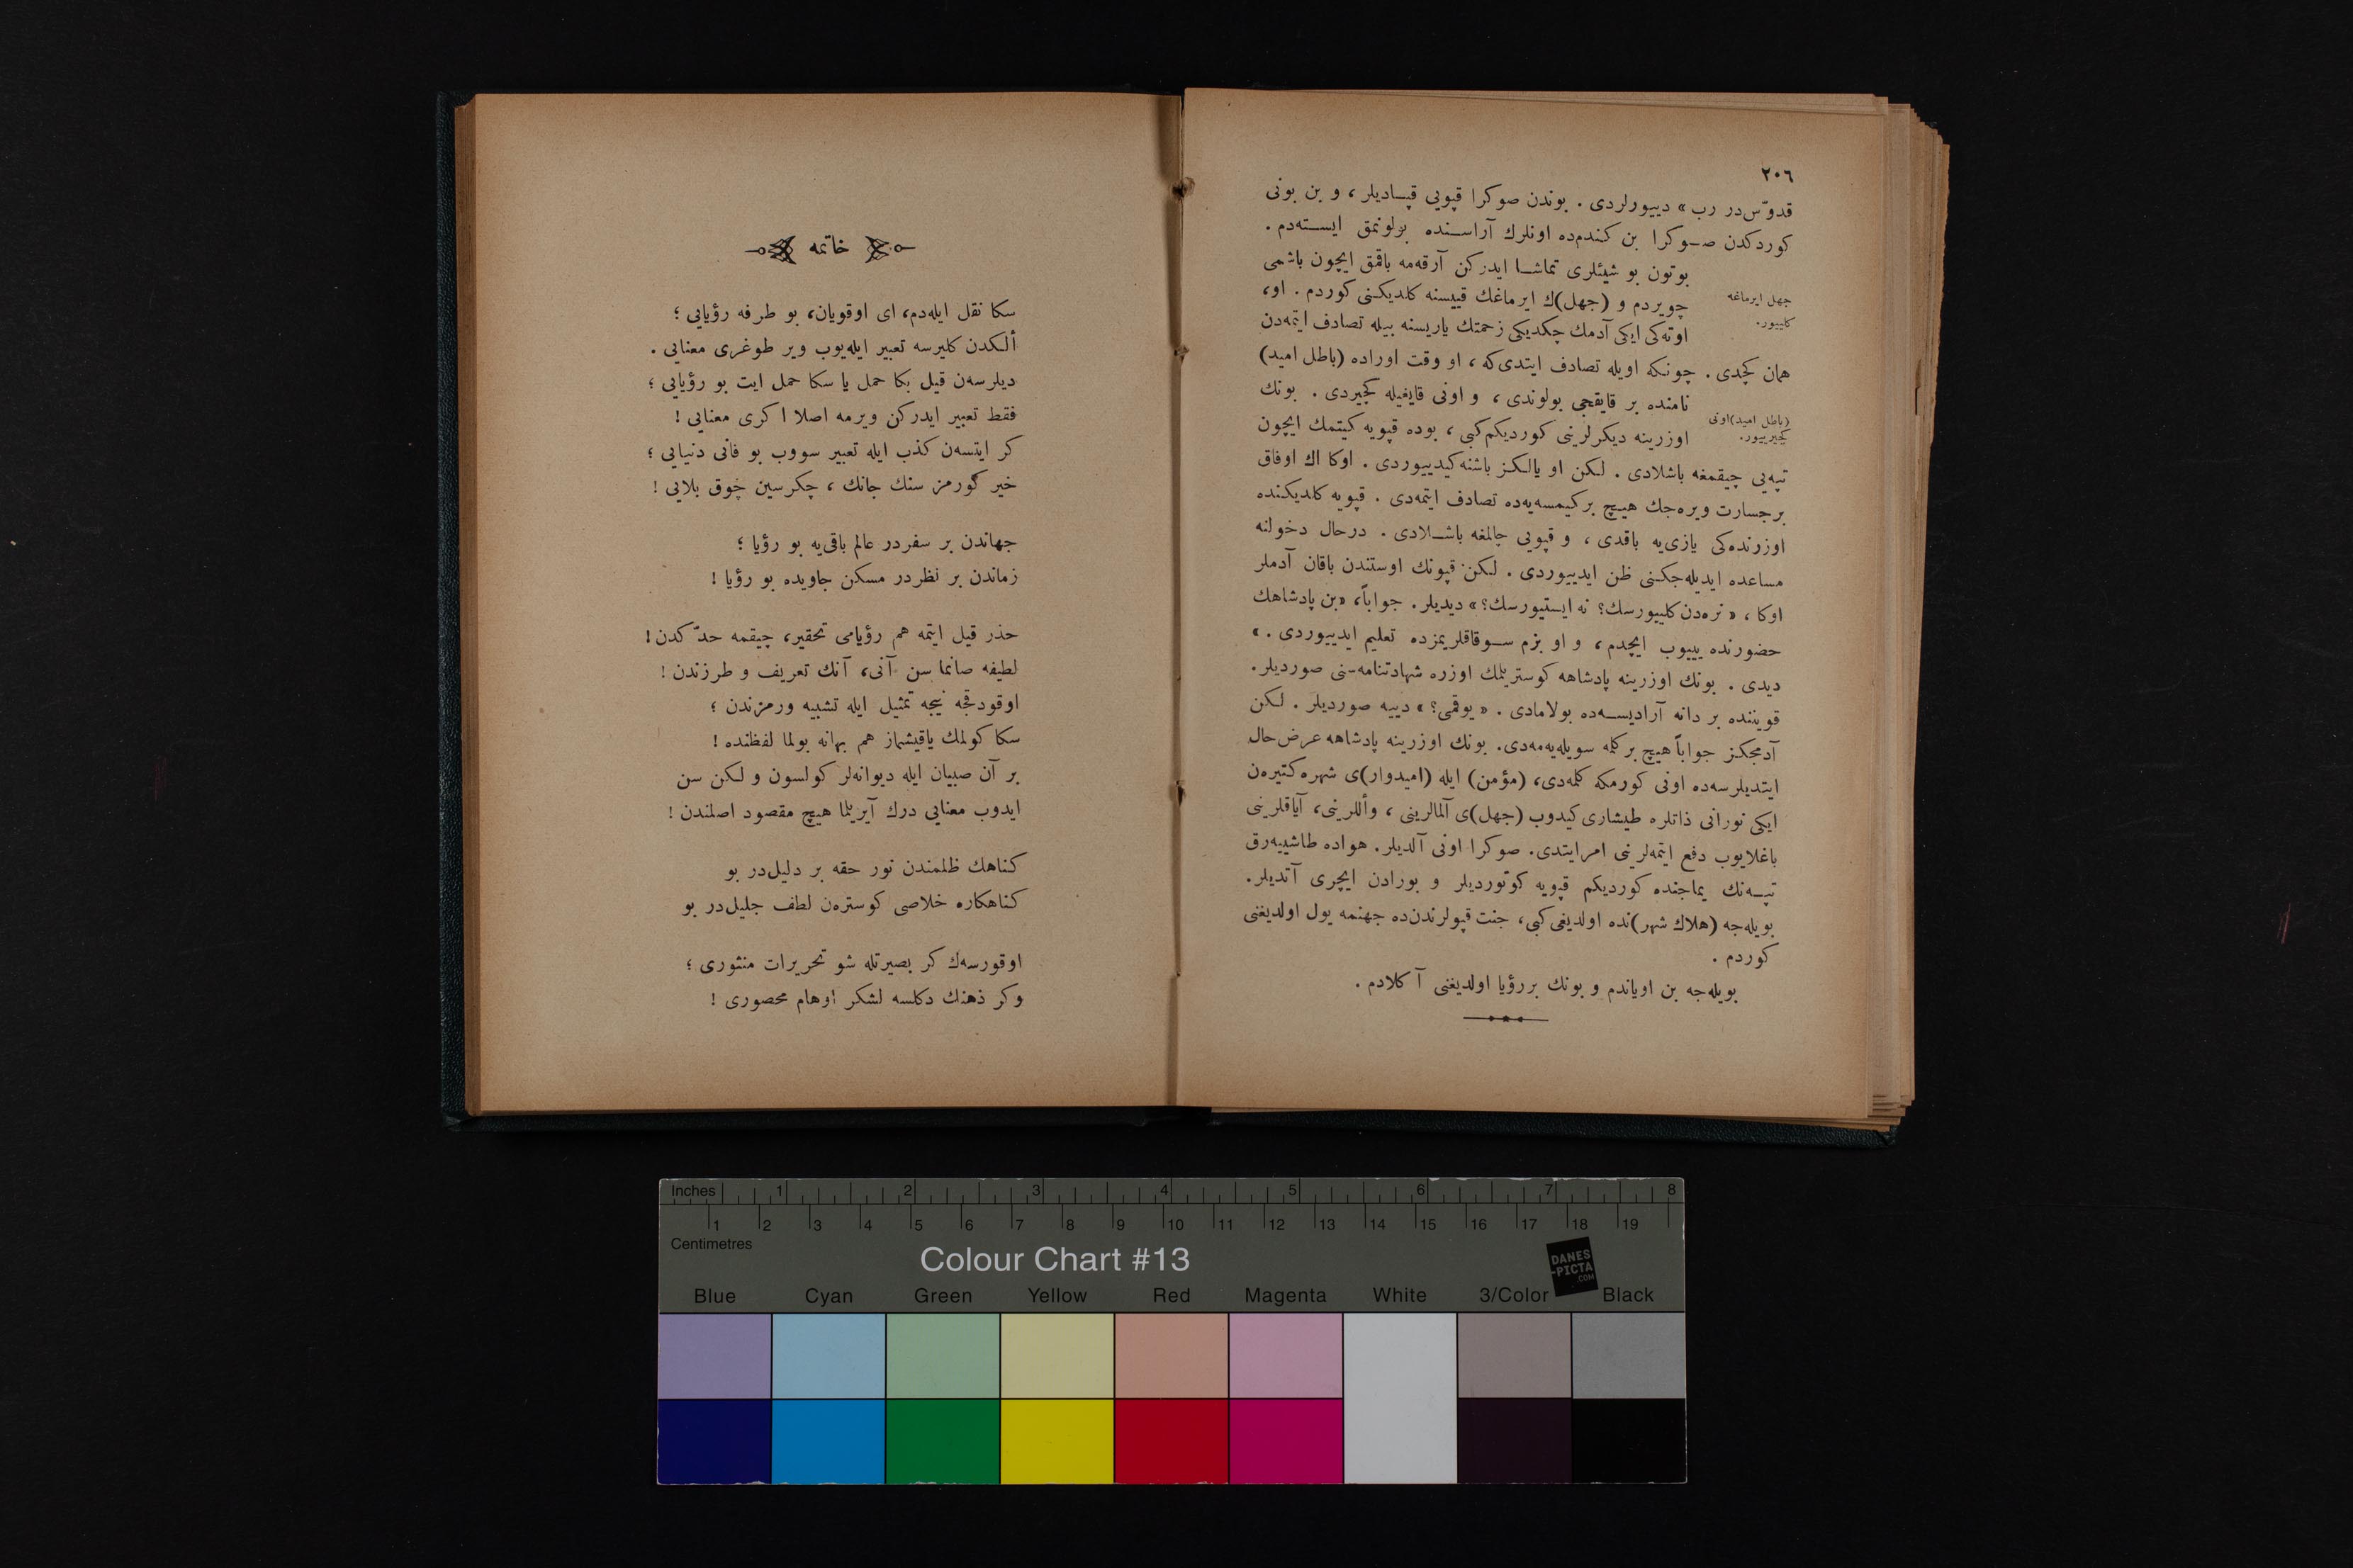 ٢٠٦
قدوّس‌در رب» دییورلردی . بوندن صوكرا قپویی قپادیلر ، و بن بونی
كوردكدن صوكرا بن كندم‌ده اونلرك آراسنده بولونمق ایسته‌دم .
بوتون بو شیئلری تماشا ایدركن آرقه‌مه باقمق ایچون باشمی
جهل ایرماغه
كلییور.
چویردم و (جهل)ك ایرماغك قییسنه كلدیكنی كوردم . او،
اوته‌كی ایكی آدمك چكدیكی زحمتك یاریسنه بیله تصادف ایتمه‌دن
همان كچدی . چونكه اویله تصادف ایتدی‌كه ، او وقت اوراده (باطل امید)
نامنده بر قایقجی بولوندی ، و اونی قایغیله كچیردی . بونك
(باطل امید) اونی
كچیرییور.
اوزرینه دیكرلرینی كوردیكم كبی ، بوده قپویه كیتمك ایچون
تپه‌یی چیقمغه باشلادی . لكن او یالكز باشنه كیدییوردی . اوكا اك اوفاق
برجسارت ویره‌جك هیچ بركیمسه‌یه‌ده تصادف ایتمه‌دی . قپویه كلدیكنده
اوزرنده‌كی یازی‌یه باقدی ، و قپویی چالمغه باشلادی . درحال دخولنه
مساعده ایدیله‌جكنی ظن ایدییوردی . لكن قپونك اوستندن باقان آدملر
اوكا ، «نره‌دن كلییورسك؟ نه ایستیورسك؟» دیدیلر. جواباً، «بن پادشاهك
حضورنده یییوب ایچدم ، و او بزم سوقاقلریمزده تعلیم ایدییوردی .»
دیدی . بونك اوزرینه پادشاهه كوستریلمك اوزره شهادتنامه‌سنی صوردیلر.
قویننده بر دانه آرادیسه‌ده بولامادی . «یوقمی؟» دییه صوردیلر . لكن
آدمجكز جواباً هیچ بركلمه سویله‌یه‌مه‌دی. بونك اوزرینه پادشاهه عرض‌حال
ایتدیلرسه‌ده اونی كورمكه كلمه‌دی، (مؤمن) ایله (امیدوار)ی شهره كتیره‌ن
ایكی نورانی ذاتلره طیشاری كیدوب (جهل)ی آلمالرینی ، واللرینی، آیاقلرینی
باغلایوب دفع ایتمه‌لرینی امرایتدی. صوكرا اونی آلدیلر. هواده طاشییه‌رق
تپه‌نك یماجنده كوردیكم قپویه كوتوردیلر و بورادن ایچری آتدیلر.
بویله‌جه (هلاك شهر)نده اولدیغی كبی، جنت قپولرندن‌ده جهنمه یول اولدیغنی
كوردم .
بویله‌جه بن اویاندم و بونك بررؤیا اولدیغنی آكلادم .
خاتمه
سكا نقل ایله‌دم، ای اوقویان، بو طرفه رؤیایی ؛
ألكدن كلیرسه تعبیر ایله‌یوب ویر طوغری معنایی .
دیلرسه‌ن قیل بكا حمل یا سكا حمل ایت بو رؤیایی ؛
فقط تعبیر ایدركن ویرمه اصلا اكری معنایی !
كر ایتسه‌ن كذب ایله تعبیر سووب بو فانی دنیایی ؛
خیر گورمز سنك جانك ، چكرسین چوق بلایی !
جهاندن بر سفردر عالم باقی‌یه بو رؤیا ؛
زماندن بر نظردر مسكن جاویده بو رؤیا !
حذر قیل ایتمه هم رؤیامی تحقیر، چیقمه حدّكدن !
لطیفه صانما سن آنی، آنك تعریف و طرزندن !
اوقودقجه نیجه تمثیل ایله تشبیه ورمزندن ؛
سكا كولمك یاقیشماز هم بهانه بولما لفظنده !
بر آن صبیان ایله دیوانه‌لر كولسون و لكن سن
ایدوب معنایی درك آیریلما هیچ مقصود اصلندن !
كناهك ظلمندن نور حقه بر دلیل‌در بو
كناهكاره خلاصی كوستره‌ن لطف جلیل‌در بو
اوقورسه‌ك كر بصیرتله شو تحریرات منثوری ؛
وكر ذهنك دكلسه لشكر اوهام محصوری !
Inches 1 2 3 4 5 6 7 8
1 2 3 4 5 6 7 8 9 10 11 12 13 14 15 16 17 18 19
Centimetres
Colour Chart #13
DANES
-PICTA
.COM
Blue Cyan Green Yellow Red Magenta White 3/Color Black